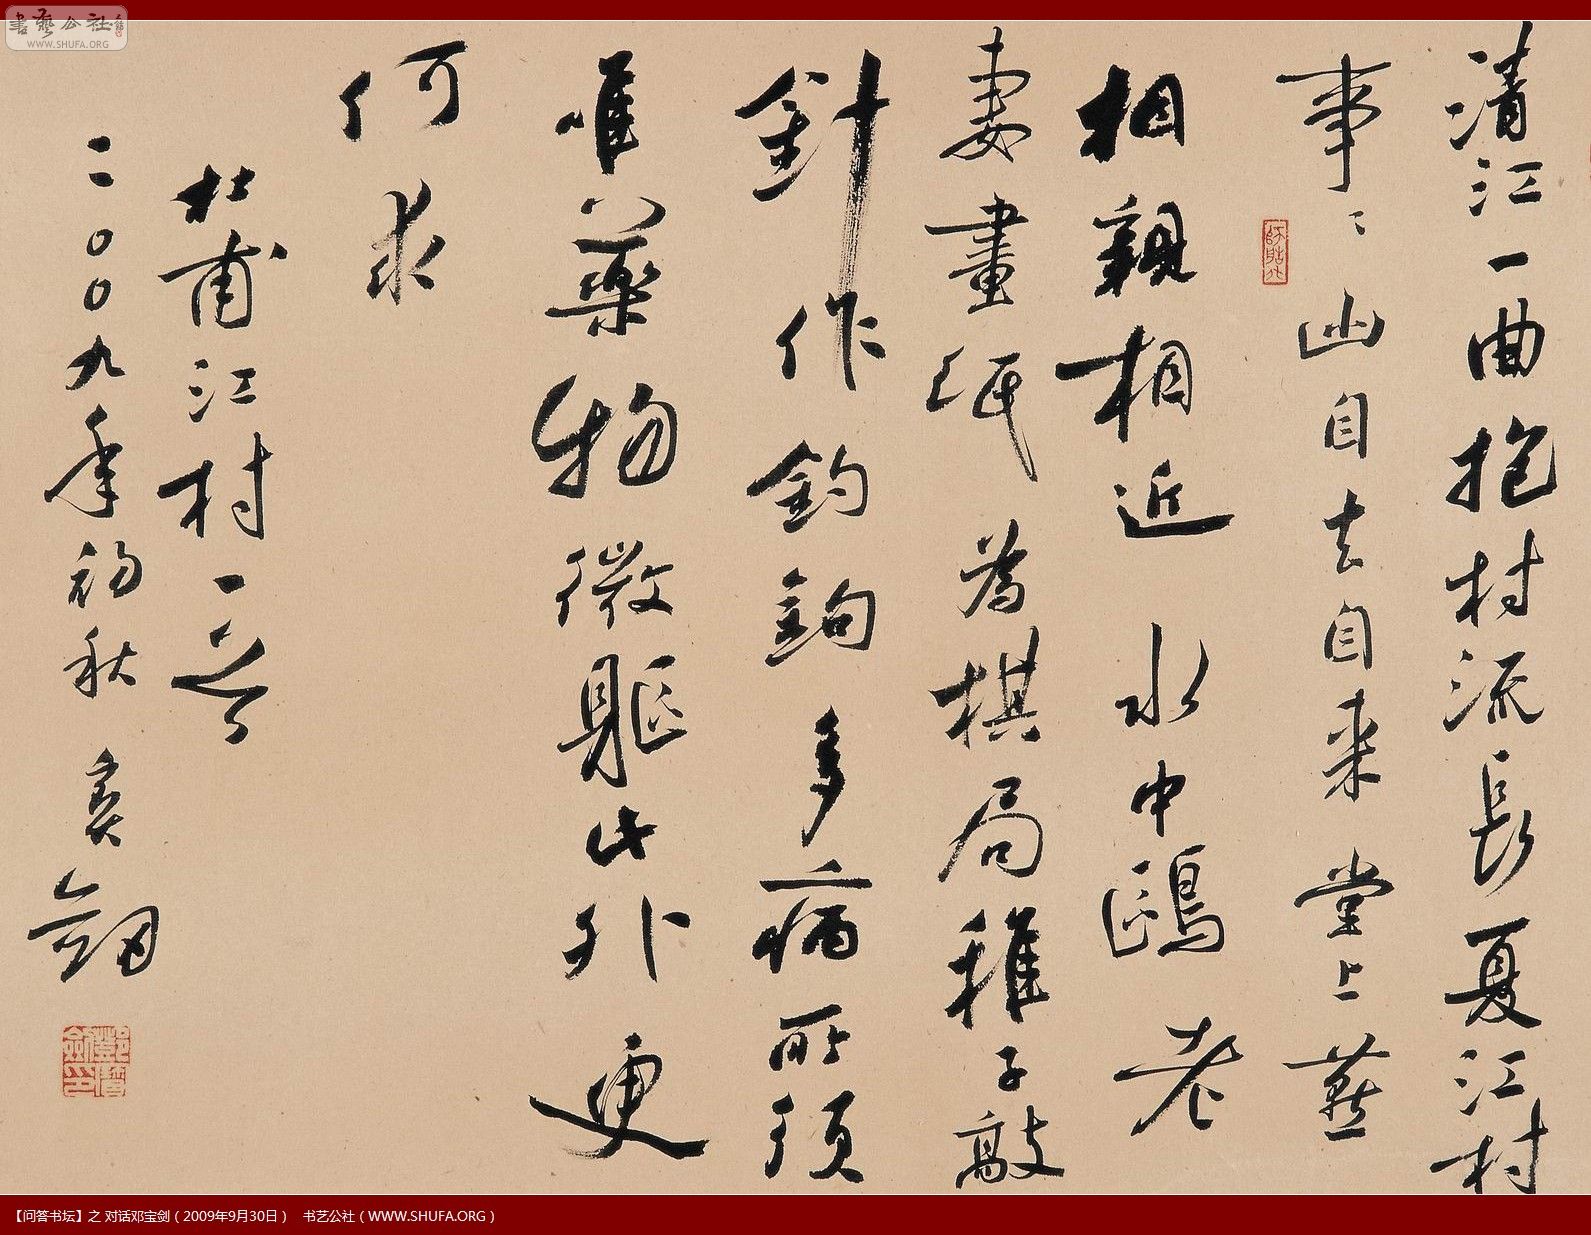 書藝公社
WWW.SHUFA.ORG
清江一曲抱村流長夏江村
事〻幽自去自来堂上燕
相親相近水中鷗老
妻畫紙為棋局稚子敲
針作釣鉤多病所須
唯藥物微軀此外更
何求
杜甫江村一首
二〇〇九年初秋 寶劍
鄧寶劍印
【问答书坛】之 对话邓宝剑（2009年9月30日） 书艺公社（WWW.SHUFA.ORG）